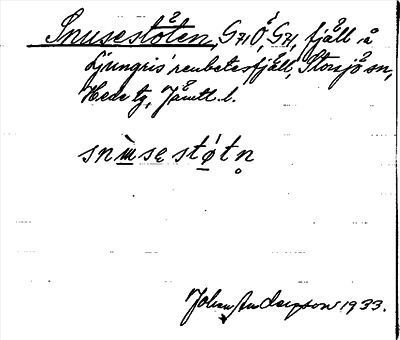 Snusestöten, G71Ö, G71, fjäll å
Ljungris' renbetesfjäll, Storsjö sn,
Hede tg, Jämtl. l.
snɯ̀sɛstǿtn̥
Johan Anderson 1933.